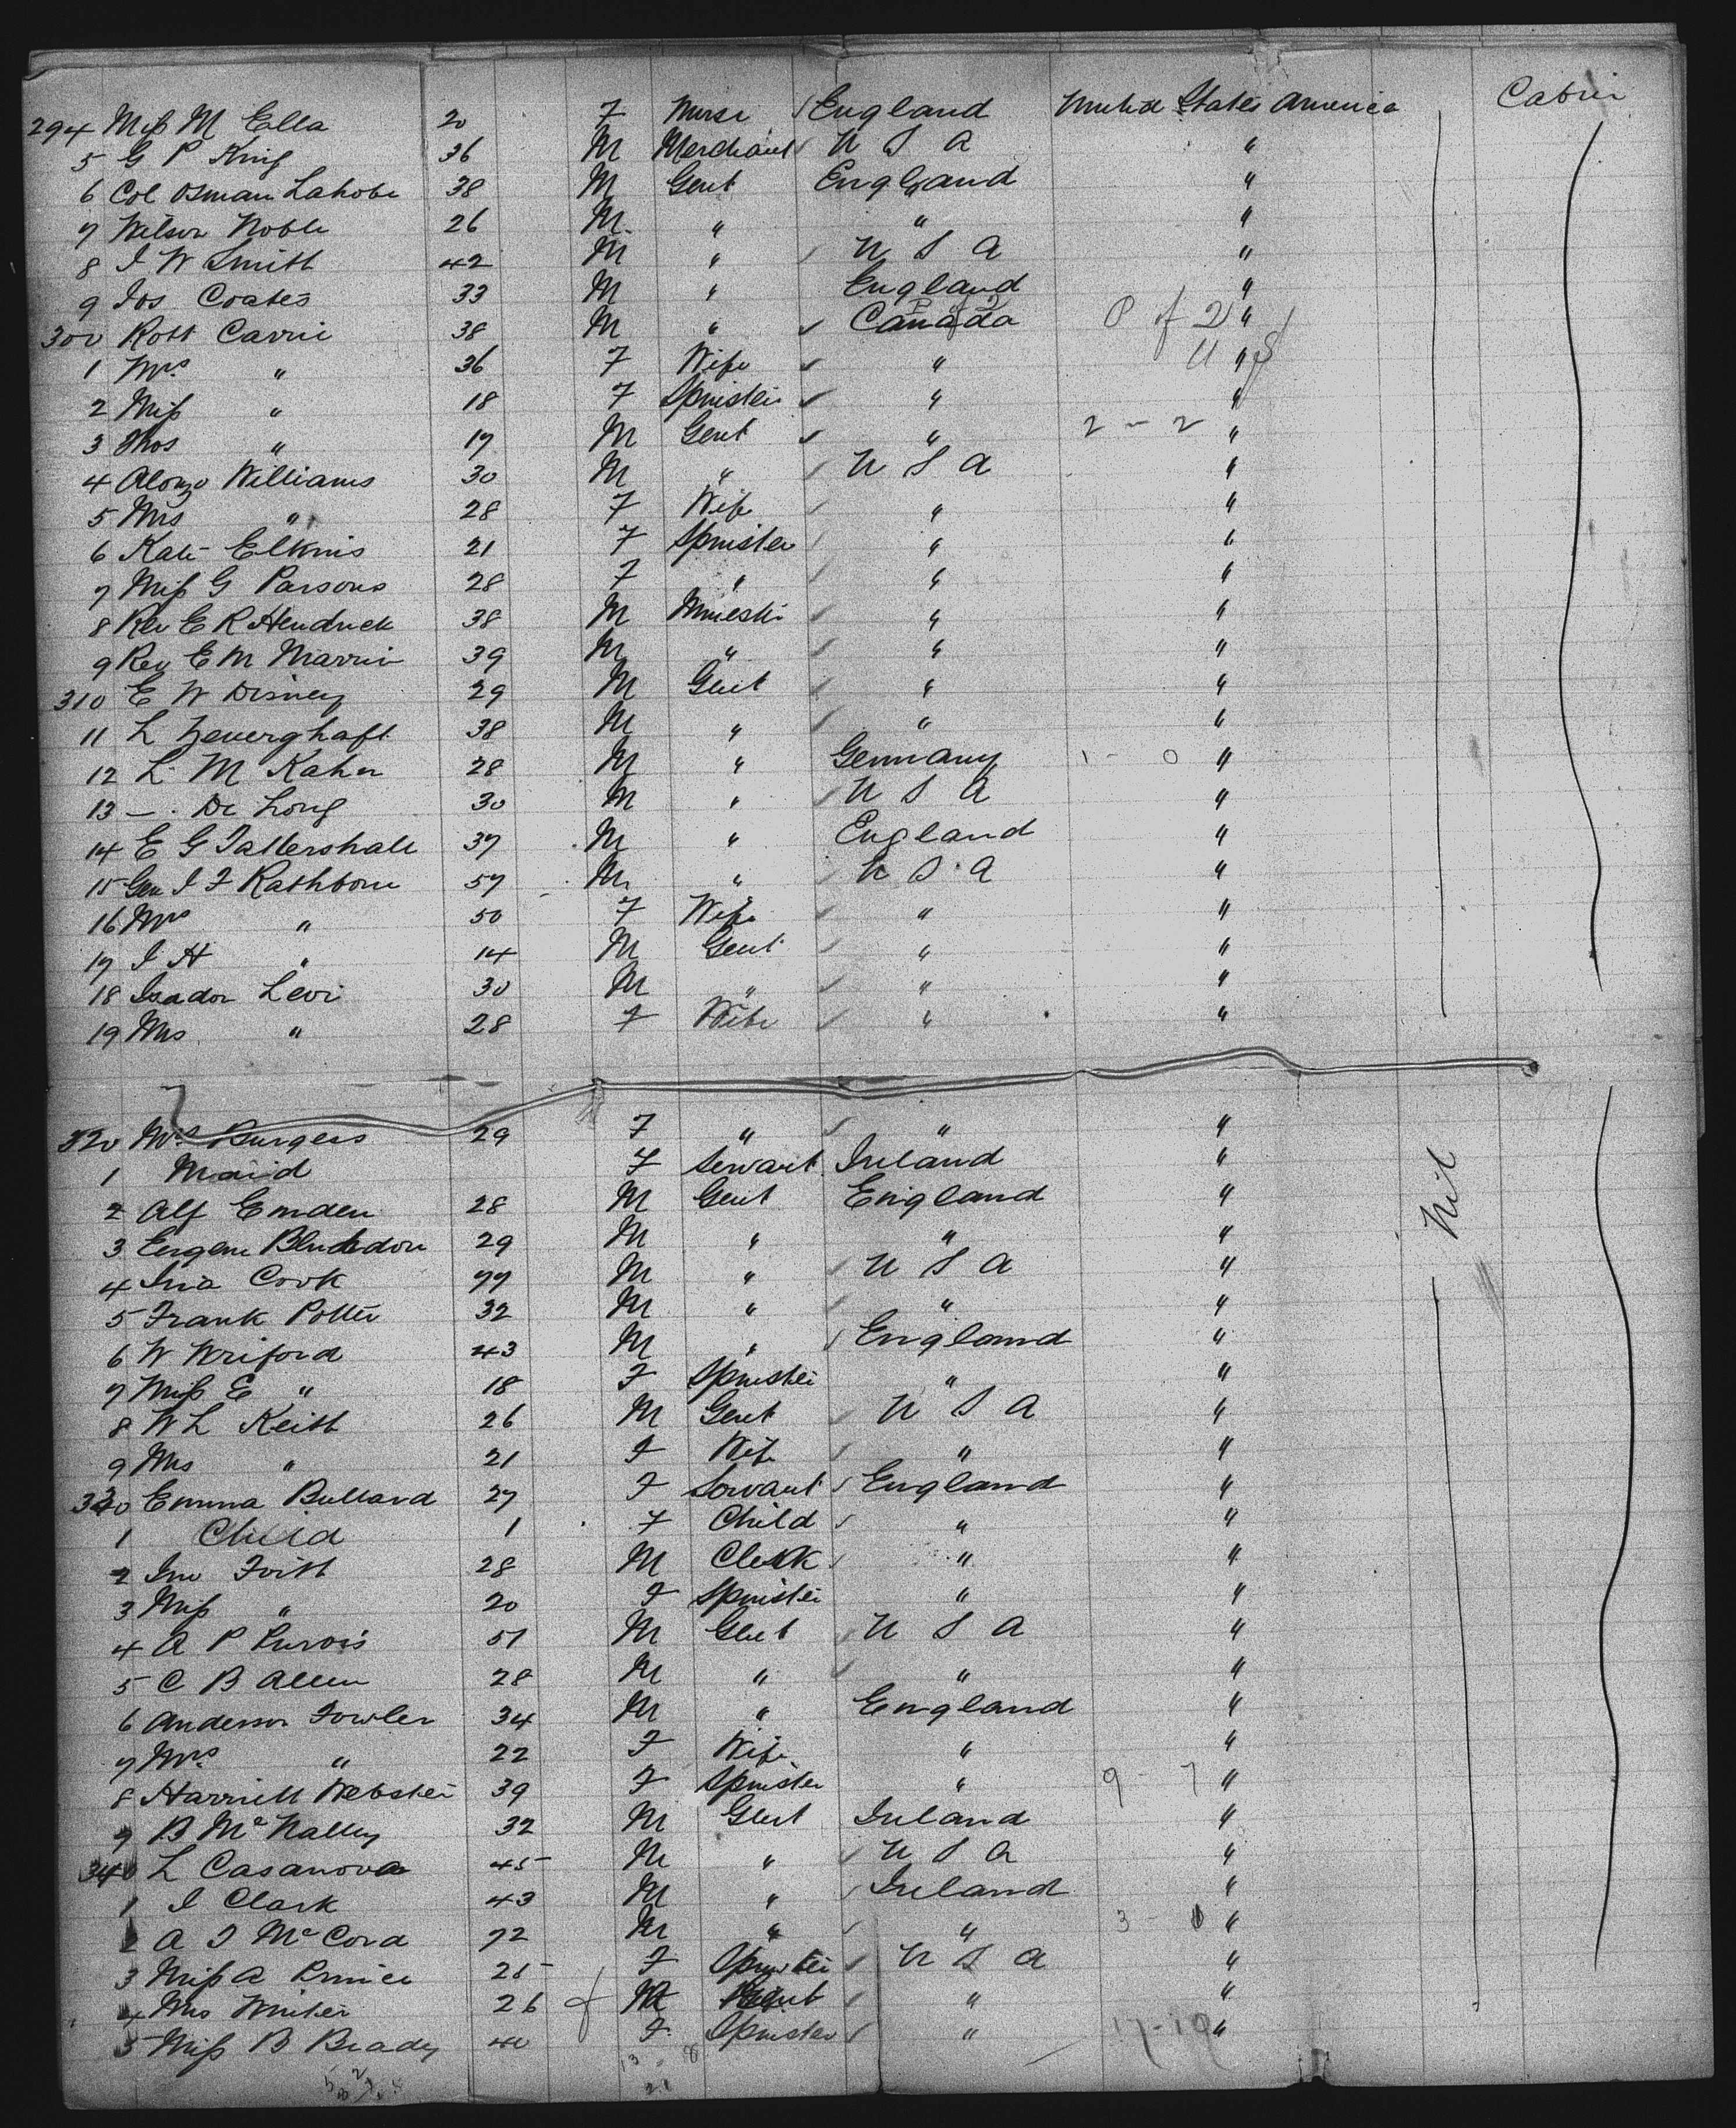 Cabin
294 Miss M Ella 20 F Nurse England United States America
5 G P King 36 M Merchant U S A "
6 Col Osman Lahobe 38 M Gent England "
7 Wilson Noble 26 M " " "
8 I W Smith 42 M " U S A "
9 Jos Coates 33 M " England "
300 Robt Carrie 38 M " Canada "
1 Mrs " 36 F Wife " "
2 Miss " 18 F Spinster " "
3 Thos " 17 M Gent " 2 - 2 "
4 Alonzo Williams 30 M " U S A "
5 Mrs " 28 F Wife " "
6 Kate Elkins 21 F Spinster " "
7 Miss G Parsons 28 F " " "
8 Rev E R Hendrick 38 M Minister " "
9 Rev E M Marvin 39 M " " "
310 E W Disney 29 M Gent " "
11 L 38 M " " "
12 L M Kahn 28 M " Germany 1 - 0 "
13 —. De Long 30 M " U S A "
14 E G Tattershall 37 M " England "
15 Gen I F Rathbone 57 M " U S A "
16 Mrs " 50 F Wife " "
17 I H " 14 M Gent " "
18 Isador Levi 30 M " " "
19 Mrs " 28 F Wife " "
320 Mrs Burgess 29 F " " "
1 Maid F Servant Ireland "
Nil
2 Alf Emden 28 M Gent England "
3 Eugene 29 M " " "
4 Ira Cook 77 M " U S A "
5 Frank Potter 32 M " " "
6 W Wriford 43 M " England "
7 Miss E " 18 F Spinster " "
8 W L Keith 26 M Gent U S A "
9 Mrs " 21 F Wife " "
330 Emma Bullard 27 F Servant England "
1 Child 1 F Child " "
2 Jno Frith 28 M Clerk " "
3 Miss " 20 F Spinster " "
4 A P Purvis 51 M Gent U S A "
5 C B Allen 28 M " " "
6 Anderson Fowler 34 M " England "
7 Mrs " 22 F Wife " "
8 Harriett Webster 39 F Spinster " 9 - 7 "
9 B McNalley 32 M Gent Ireland "
340 L Casanova 45 M " U S A "
1 I Clark 43 M " Ireland "
2 A J McCord 72 M " " 3 - "
3 Miss A 25 F Spinster U S A "
4 Mrs Winter 26 f " "
5 Miss B Beady 40 F Spinster " 17-19 "